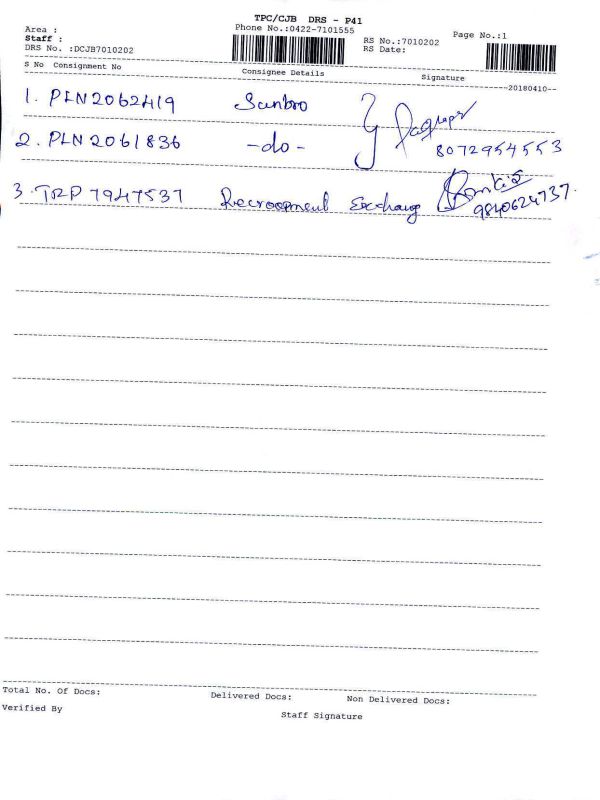 TPC/CJB DRS - P41
Area :
Phone No.:0422-7101555
Page No.:1
Staff :
RS No.:7010202
DRS No. :DCJB7010202
RS Date:
S No Consignment No Consignee Details Signature
--20180410--
1. PLN2062419 Sunbro
2. PLN2061836 -do- 8072954553
3. TRP7947537 Exchang 9840624737.
Total No. Of Docs: Delivered Docs: Non Delivered Docs:
Verified By Staff Signature